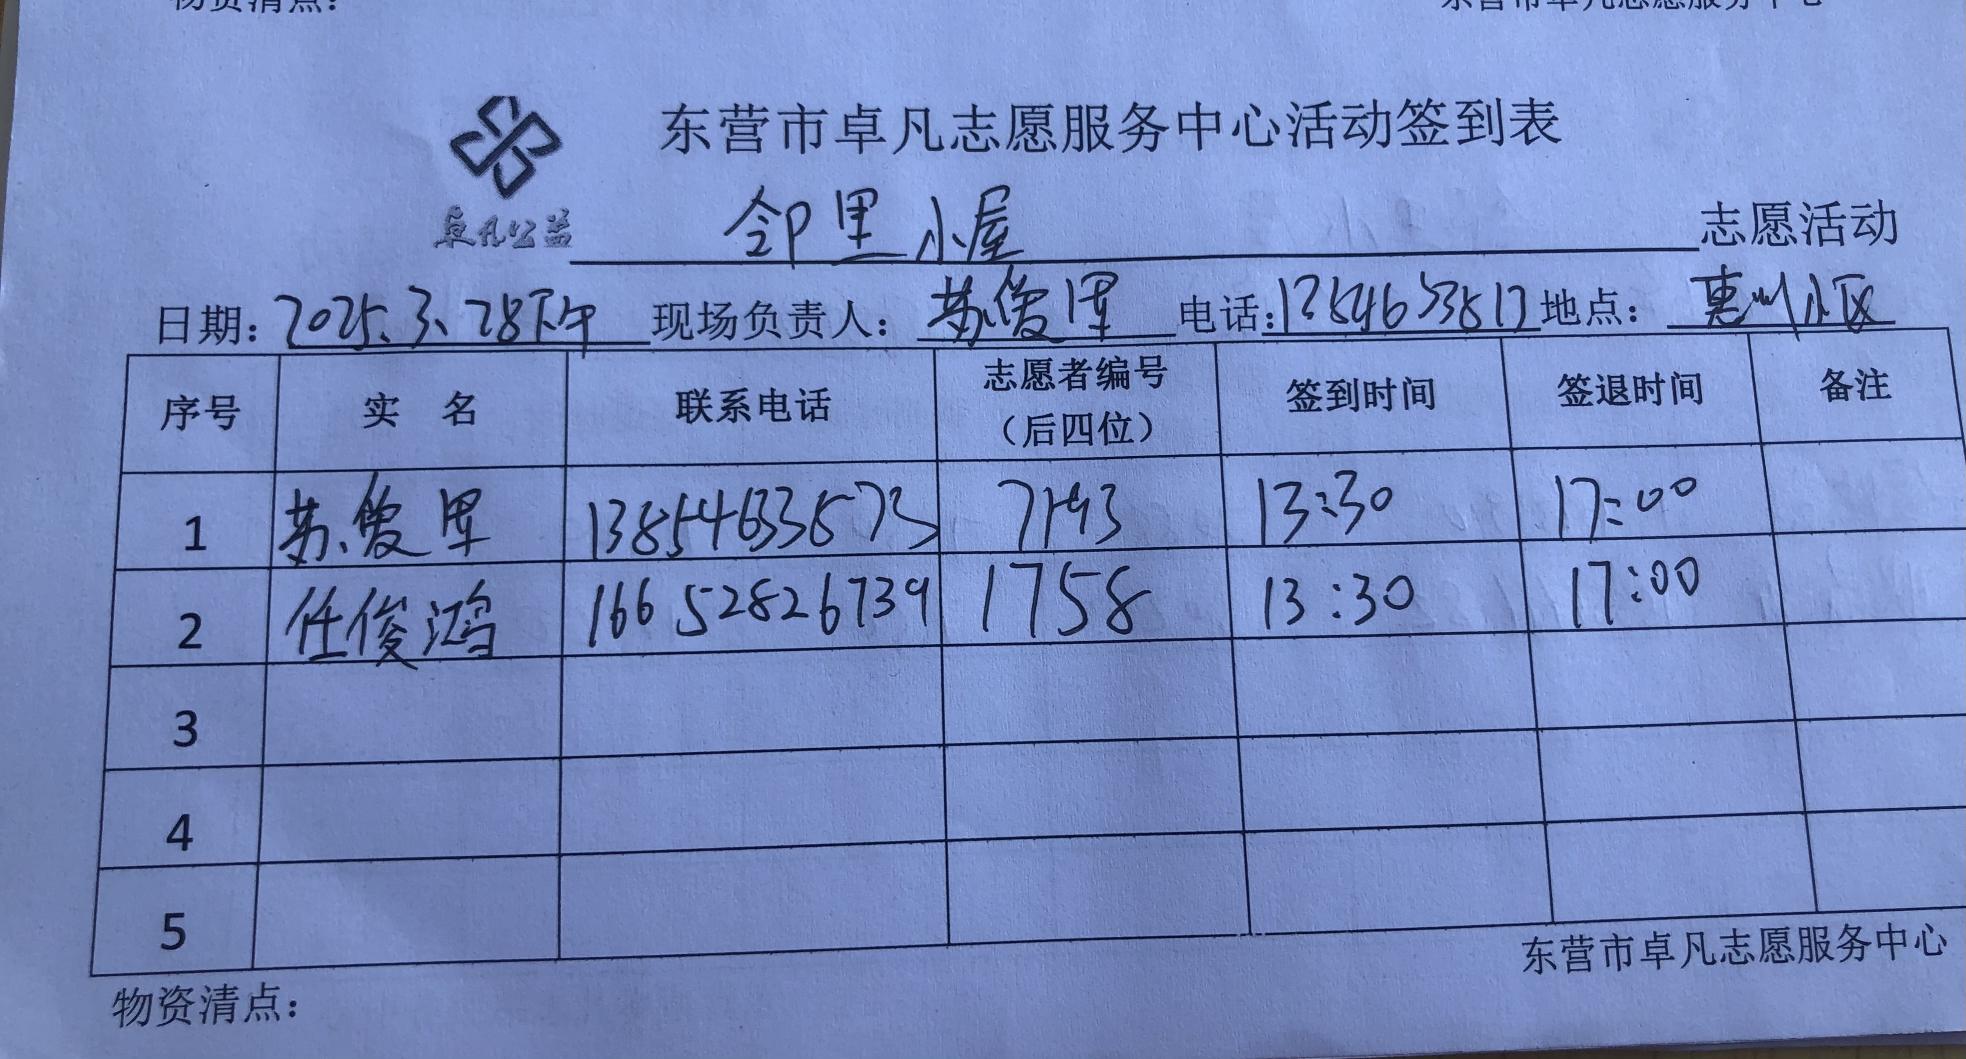 物资清点：
东营市卓凡志愿服务中心
东营市卓凡志愿服务中心活动签到表
卓凡公益
邻里小屋 志愿活动
日期：2025.3.28下午 现场负责人：苏俊 电话： 地点：惠州小区
序号 实 名 联系电话 志愿者编号（后四位） 签到时间 签退时间 备注
1 苏俊 7193 13:30 17:00
2 任俊鸿 16652826739 1758 13:30 17:00
3
4
5
东营市卓凡志愿服务中心
物资清点：